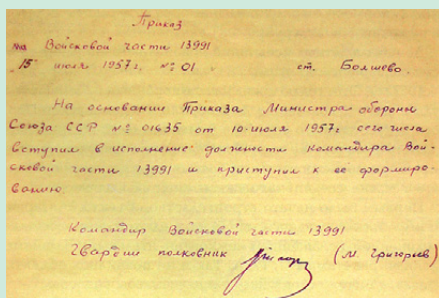 Приказ
Войсковой части 13991
"15" июля 1957г. №01 ст. Болшево.
На основании Приказа Министра обороны
Союза ССР № 01635 от 10-июля 1957г сего числа
вступил в исполнение должности командира Вой-
сковой части 13991 и приступил к её формиро-
ванию.
Командир Войсковой части 13991
Гвардии полковник (М. Григорьев)